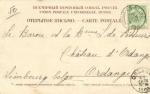 ВСЕМІРНЫЙ ПОЧТОВЫЙ СОЮЗЪ. РОССІЯ.
UNION POSTALE UNIVERSELLE. RUSSIE.
ОТКРЫТОЕ ПИСЬМО. — CARTE POSTALE
Le Baron et la Bonne de
Château d'Ordange
Limbourg belge Ordange